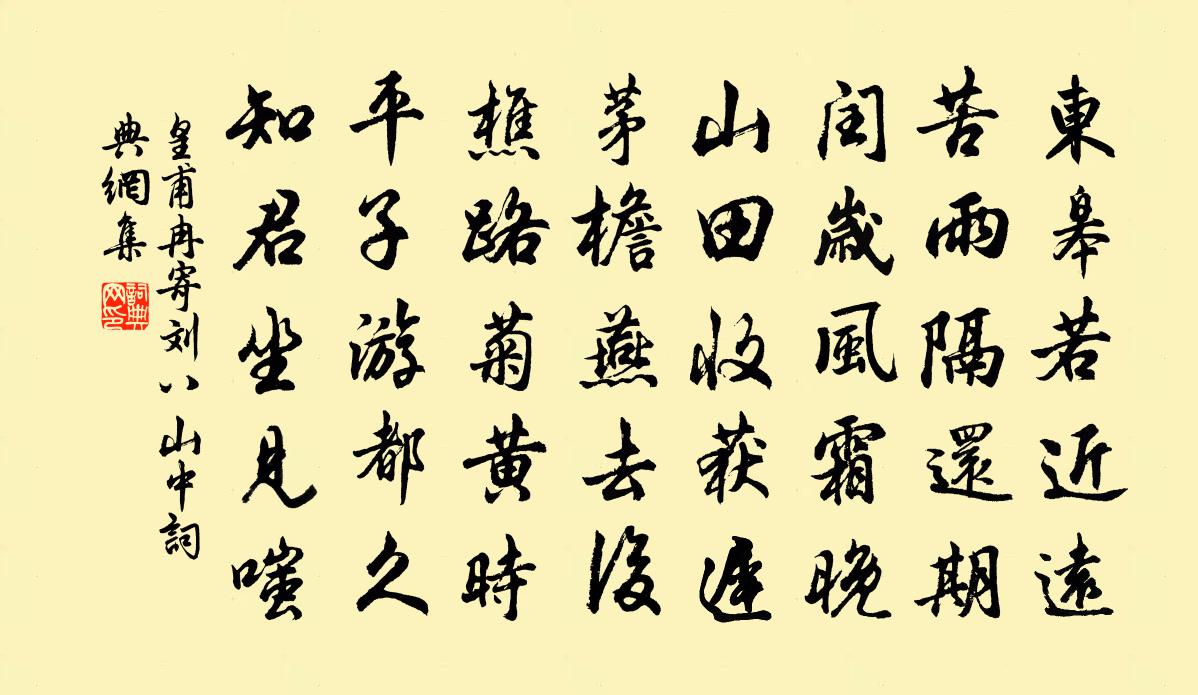 東皋若近遠
苦雨隔還期
閏歲風霜晚
山田收获遲
茅檐燕去後
樵路菊黄時
平子游都久
知君坐見嗤
皇甫冉寄刘八山中詞
典網集
詞典
网印